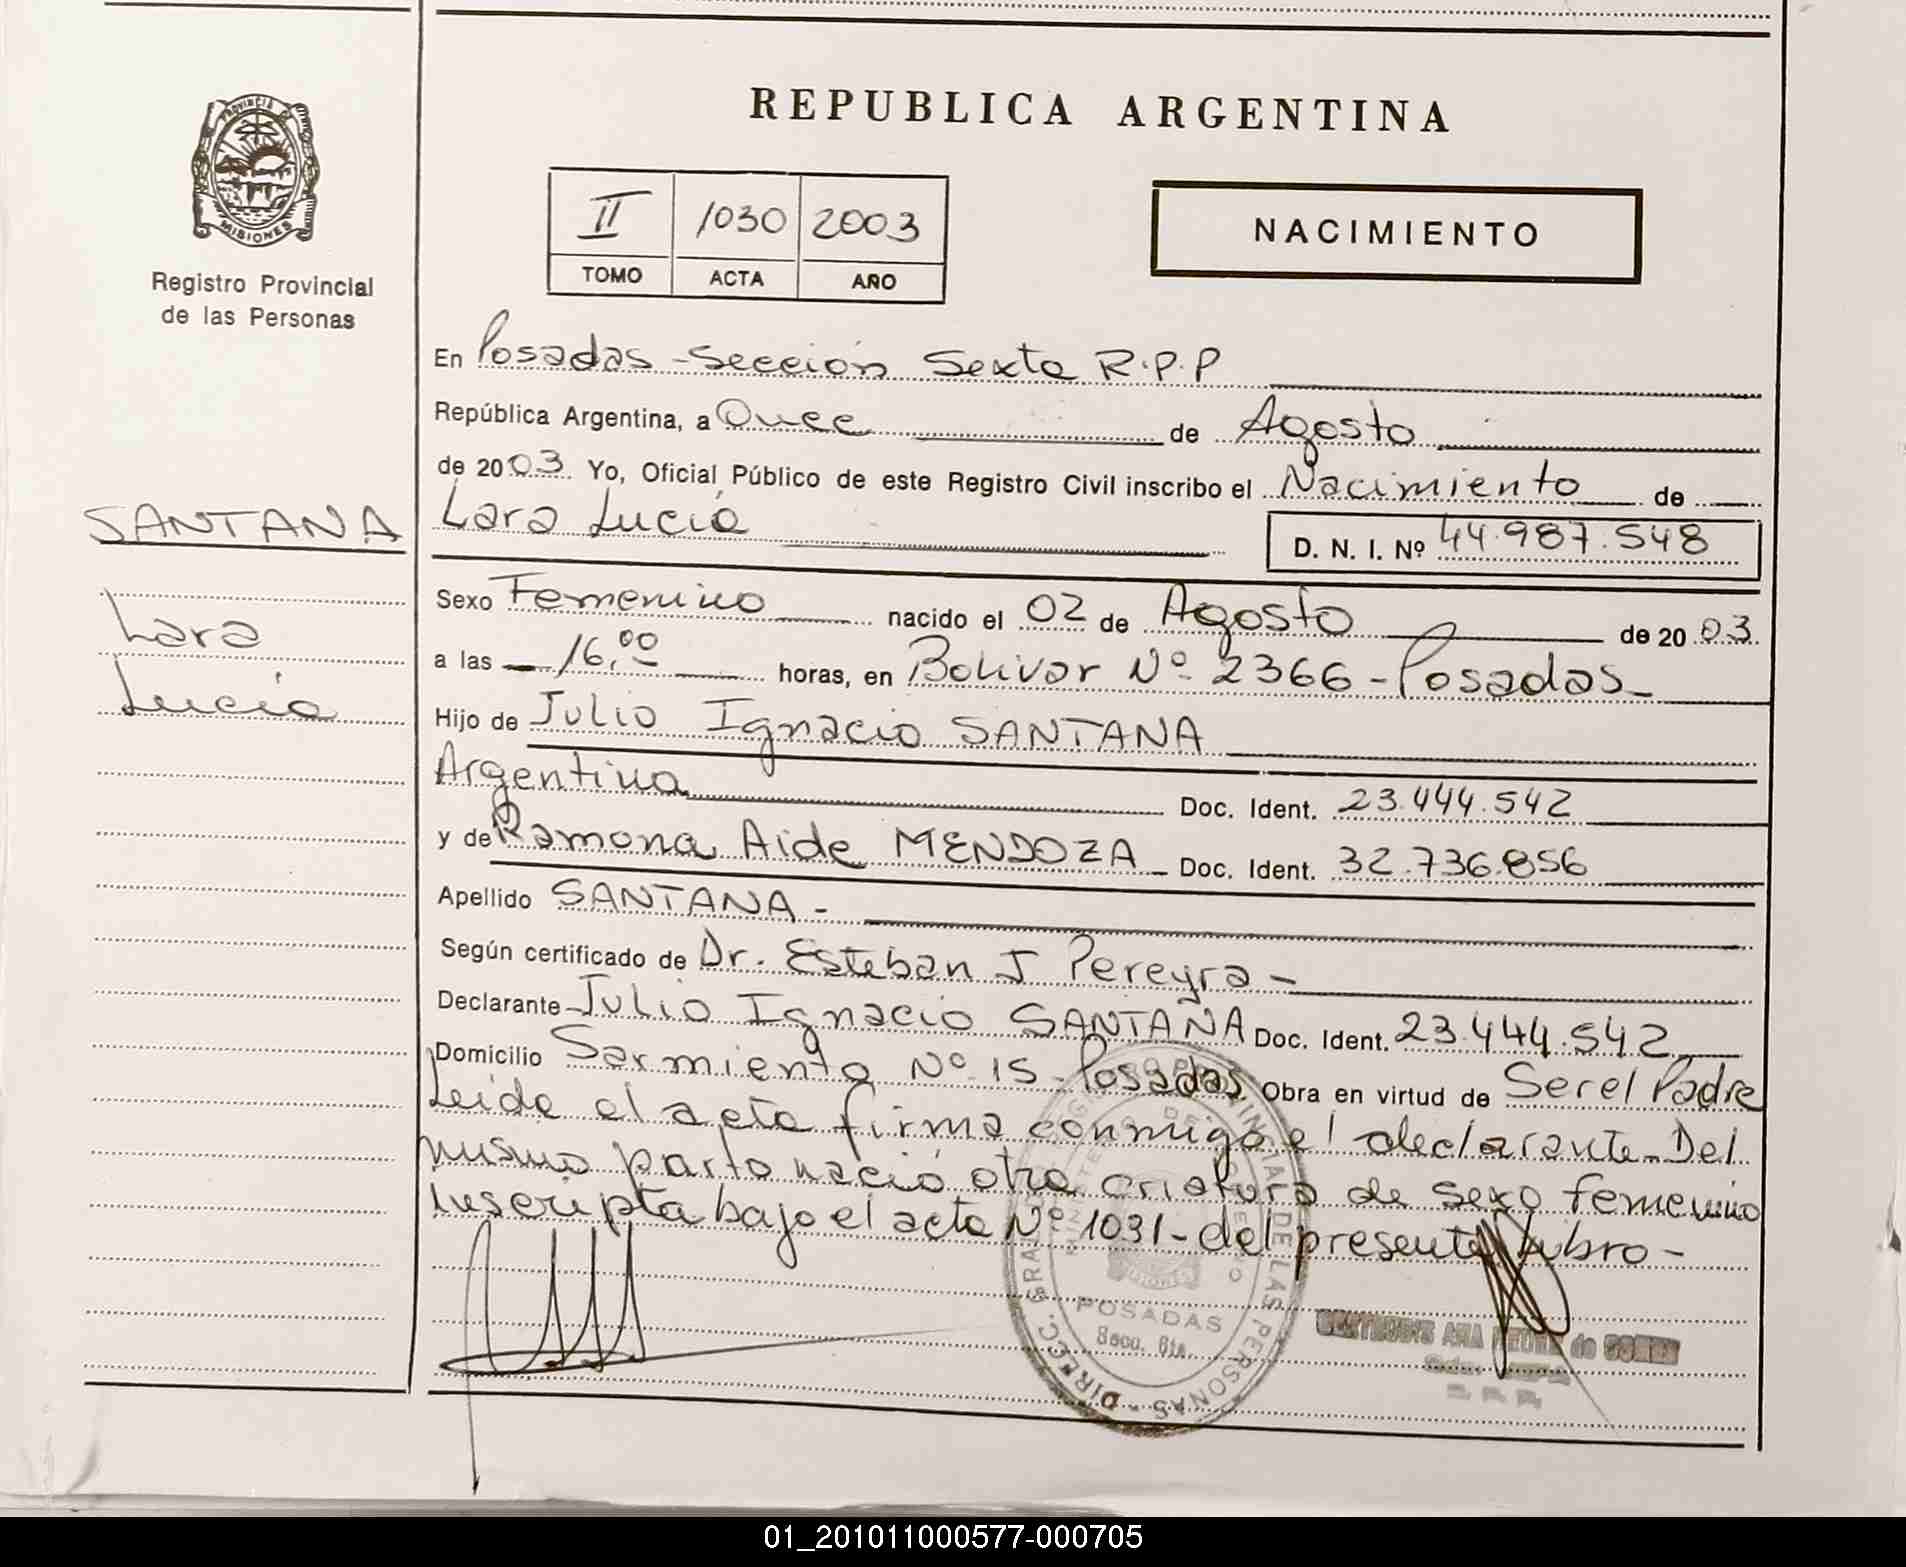 REPUBLICA ARGENTINA
PROVINCIA
MISIONES
Registro Provincial
de las Personas
II 1030 2003
TOMO ACTA AÑO
NACIMIENTO
SANTANA
Lara
Lucía
En Posadas - Sección Sexta R.P.P
República Argentina, a Once de Agosto
de 2003. Yo, Oficial Público de este Registro Civil inscribo el Nacimiento de
Lara Lucía D. N. I. Nº 44.987.548
Sexo Femenino nacido el 02 de Agosto de 2003.
a las 16,00 horas, en Bolivar Nº 2366 - Posadas
Hijo de Julio Ignacio SANTANA
Argentina Doc. Ident. 23.444.542
y de Ramona Aide MENDOZA Doc. Ident. 32.736.856
Apellido SANTANA -
Según certificado de Dr. Esteban J Pereyra -
Declarante Julio Ignacio SANTANA Doc. Ident. 23.444.542
Domicilio Sarmiento Nº 15 - Posadas Obra en virtud de Ser el Padre
Leida el acta firma conmigo el declarante. Del
mismo parto nació otra criatura de sexo femenino
Inscripta bajo el acta Nº 1031 - del presente Libro -
DIRECC. GRAL. PERSONAS
DE LAS
POSADAS
Secc. 6ta.
01_201011000577-000705